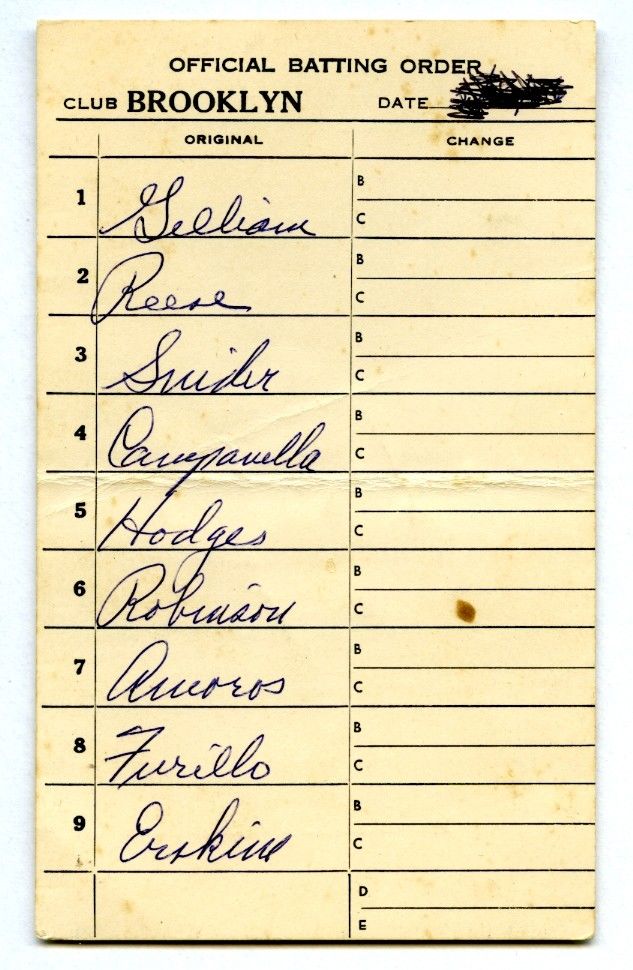 OFFICIAL BATTING ORDER
CLUB BROOKLYN DATE
ORIGINAL CHANGE
1 Gilliam B
C
2 Reese B
C
3 Snider B
C
4 Campanella B
C
5 Hodges B
C
6 Robinson B
C
7 Amoros B
C
8 Furillo B
C
9 Erskine B
C
D
E